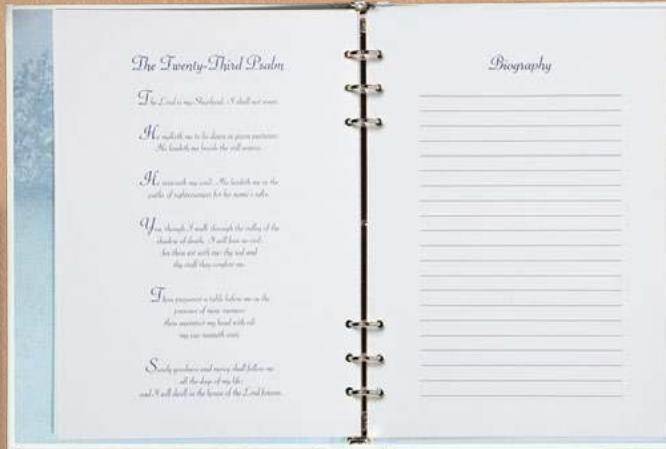 The Twenty-Third Psalm
The Lord is my Shepherd; I shall not want.
He maketh me to lie down in green pastures:
He leadeth me beside the still waters.
He restoreth my soul: He leadeth me in the
paths of righteousness for his name's sake.
Yea, though I walk through the valley of the
shadow of death, I will fear no evil:
for thou art with me; thy rod and
thy staff they comfort me.
Thou preparest a table before me in the
presence of mine enemies:
thou anointest my head with oil:
my cup runneth over.
Surely goodness and mercy shall follow me
all the days of my life:
and I will dwell in the house of the Lord forever.
Biography